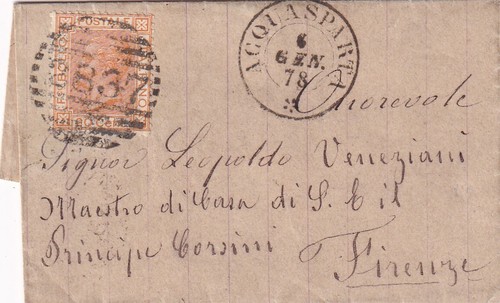 POSTALE
BOLLO
ACQUASPARTA
6
GEN.
78
Onorevole
Signor Leopoldo Veneziani
Maestro di Casa di S. E il
Principe Corsini
Firenze